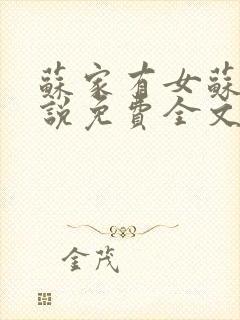 蘇家有女蘇
說免費全文
金茂